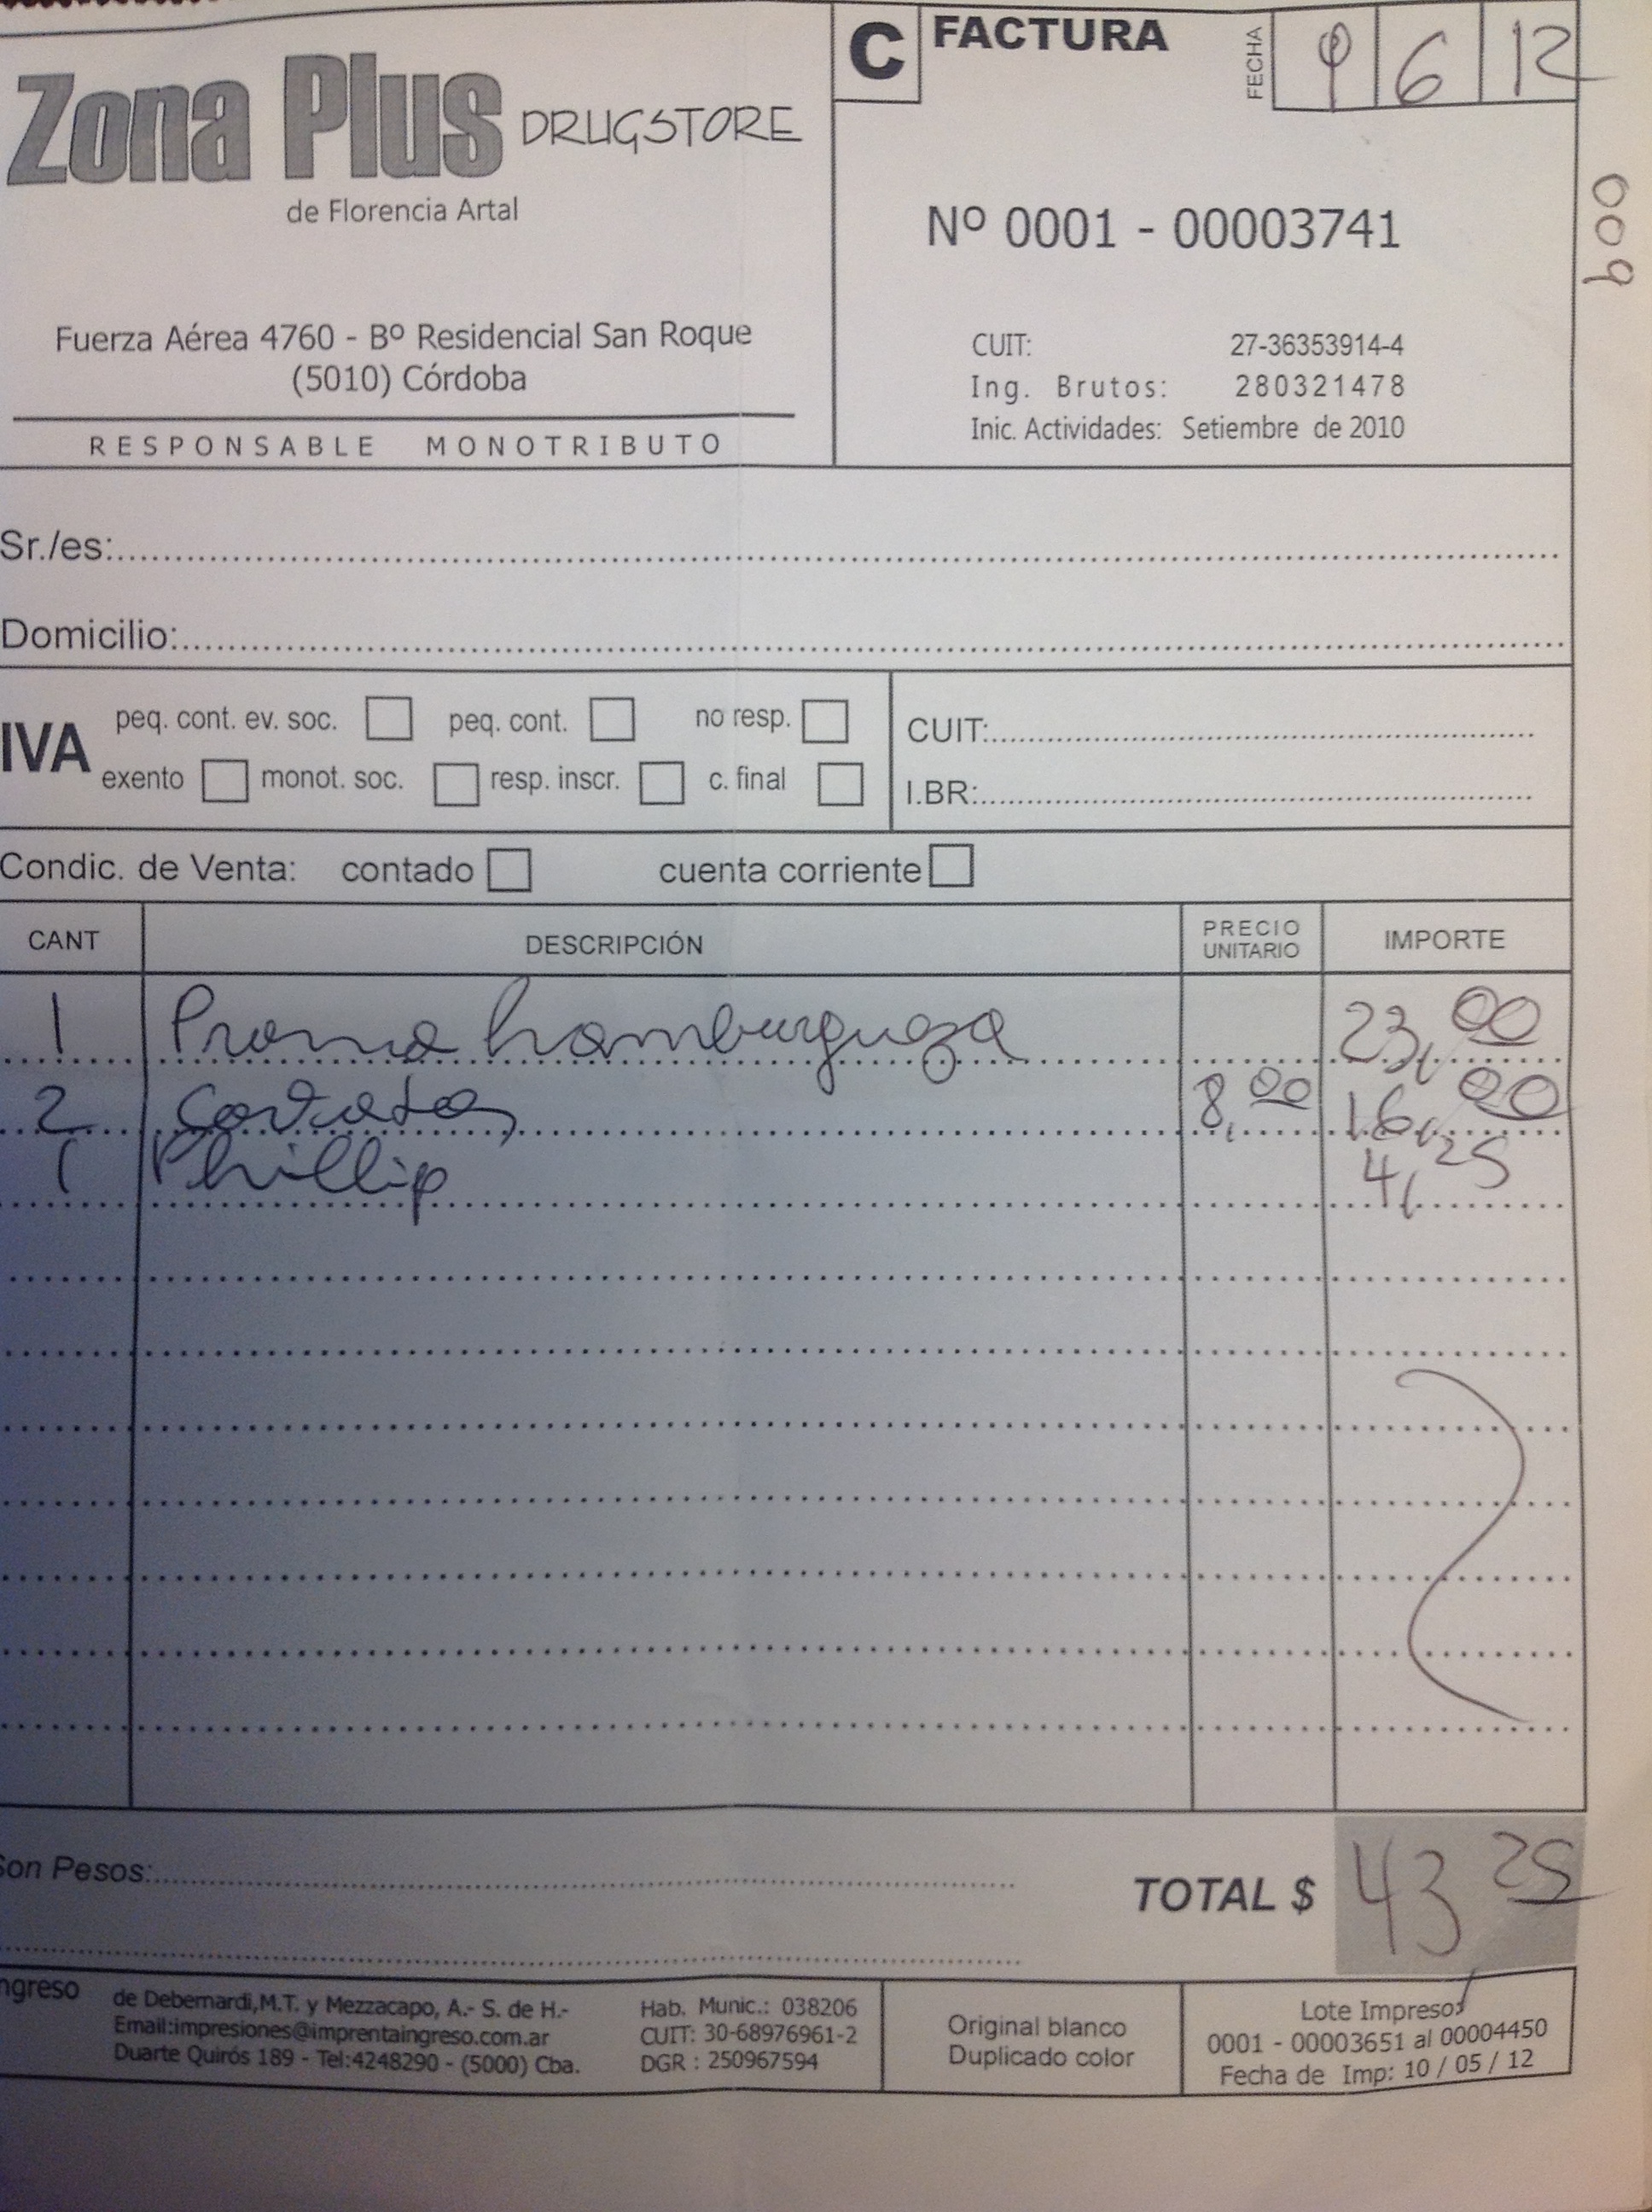 C FACTURA
FECHA 9 6 12
Zona Plus DRUGSTORE
de Florencia Artal
Nº 0001 - 00003741
009
Fuerza Aérea 4760 - Bº Residencial San Roque
(5010) Córdoba
RESPONSABLE MONOTRIBUTO
CUIT: 27-36353914-4
Ing. Brutos: 280321478
Inic. Actividades: Setiembre de 2010
Sr./es:
Domicilio:
IVA
peq. cont. ev. soc. peq. cont. no resp.
exento monot. soc. resp. inscr. c. final
CUIT:
I.BR:
Condic. de Venta: contado cuenta corriente
CANT DESCRIPCIÓN PRECIO UNITARIO IMPORTE
1 Promo hamburguesa 23,00
2 8,00 16,00
1 Phillip 4,25
Son Pesos:
TOTAL $ 43 25
ngreso
de Debernardi,M.T. y Mezzacapo, A.- S. de H.-
Email:impresiones@imprentaingreso.com.ar
Duarte Quirós 189 - Tel:4248290 - (5000) Cba.
Hab. Munic.: 038206
CUIT: 30-68976961-2
DGR : 250967594
Original blanco
Duplicado color
Lote Impreso:
0001 - 00003651 al 00004450
Fecha de Imp: 10 / 05 / 12